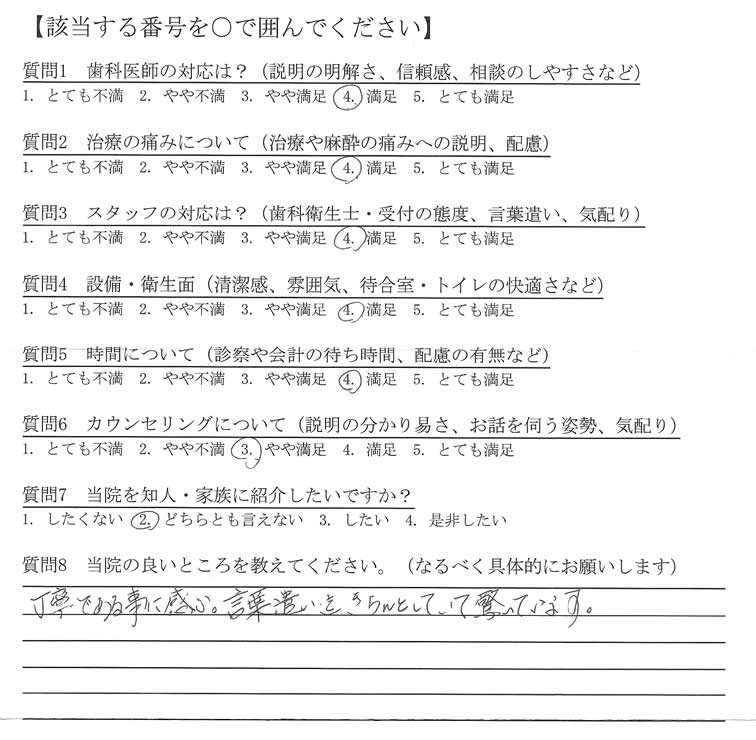 【該当する番号を○で囲んでください】
質問1 歯科医師の対応は？（説明の明解さ、信頼感、相談のしやすさなど）
1. とても不満 2. やや不満 3. やや満足 4. 満足 5. とても満足
質問2 治療の痛みについて（治療や麻酔の痛みへの説明、配慮）
1. とても不満 2. やや不満 3. やや満足 4. 満足 5. とても満足
質問3 スタッフの対応は？（歯科衛生士・受付の態度、言葉遣い、気配り）
1. とても不満 2. やや不満 3. やや満足 4. 満足 5. とても満足
質問4 設備・衛生面（清潔感、雰囲気、待合室・トイレの快適さなど）
1. とても不満 2. やや不満 3. やや満足 4. 満足 5. とても満足
質問5 時間について（診察や会計の待ち時間、配慮の有無など）
1. とても不満 2. やや不満 3. やや満足 4. 満足 5. とても満足
質問6 カウンセリングについて（説明の分かり易さ、お話を伺う姿勢、気配り）
1. とても不満 2. やや不満 3. やや満足 4. 満足 5. とても満足
質問7 当院を知人・家族に紹介したいですか？
1. したくない 2. どちらとも言えない 3. したい 4. 是非したい
質問8 当院の良いところを教えてください。（なるべく具体的にお願いします）
丁寧である事に感心。言葉遣いもきちんとしていて驚いています。